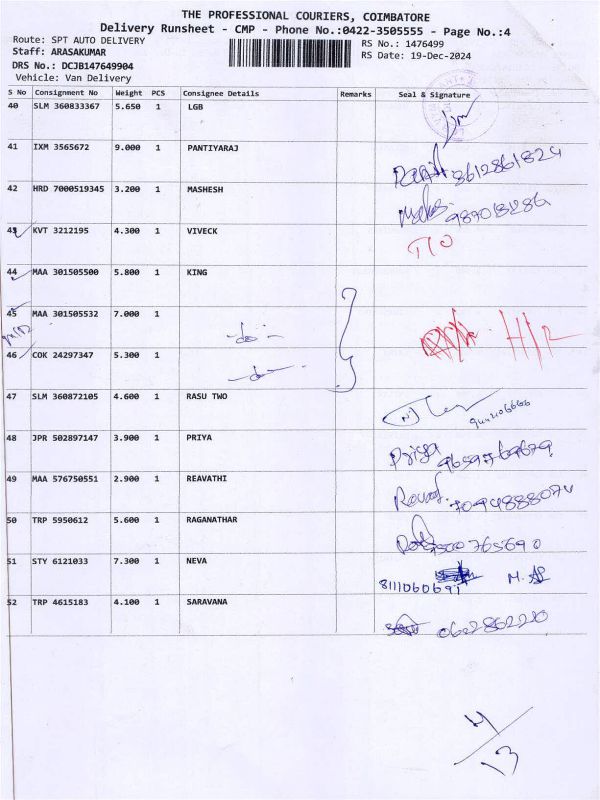 THE PROFESSIONAL COURIERS, COIMBATORE
Delivery Runsheet - CMP - Phone No.:0422-3505555 - Page No.:4
Route: SPT AUTO DELIVERY RS No.: 1476499
Staff: ARASAKUMAR RS Date: 19-Dec-2024
DRS No.: DCJB147649904
Vehicle: Van Delivery
S No Consignment No Weight PCS Consignee Details Remarks Seal & Signature
40 SLM 360833367 5.650 1 LGB
41 IXM 3565672 9.000 1 PANTIYARAJ
8612861824
42 HRD 7000519345 3.200 1 MASHESH
43 KVT 3212195 4.300 1 VIVECK
44 MAA 301505500 5.800 1 KING
45 MAA 301505532 7.000 1
-do-
46 COK 24297347 5.300 1
-do-
47 SLM 360872105 4.600 1 RASU TWO
48 JPR 502897147 3.900 1 PRIYA
Priya 9659769679
49 MAA 576750551 2.900 1 REAVATHI
7094888074
50 TRP 5950612 5.600 1 RAGANATHAR
51 STY 6121033 7.300 1 NEVA
8111060691
52 TRP 4615183 4.100 1 SARAVANA